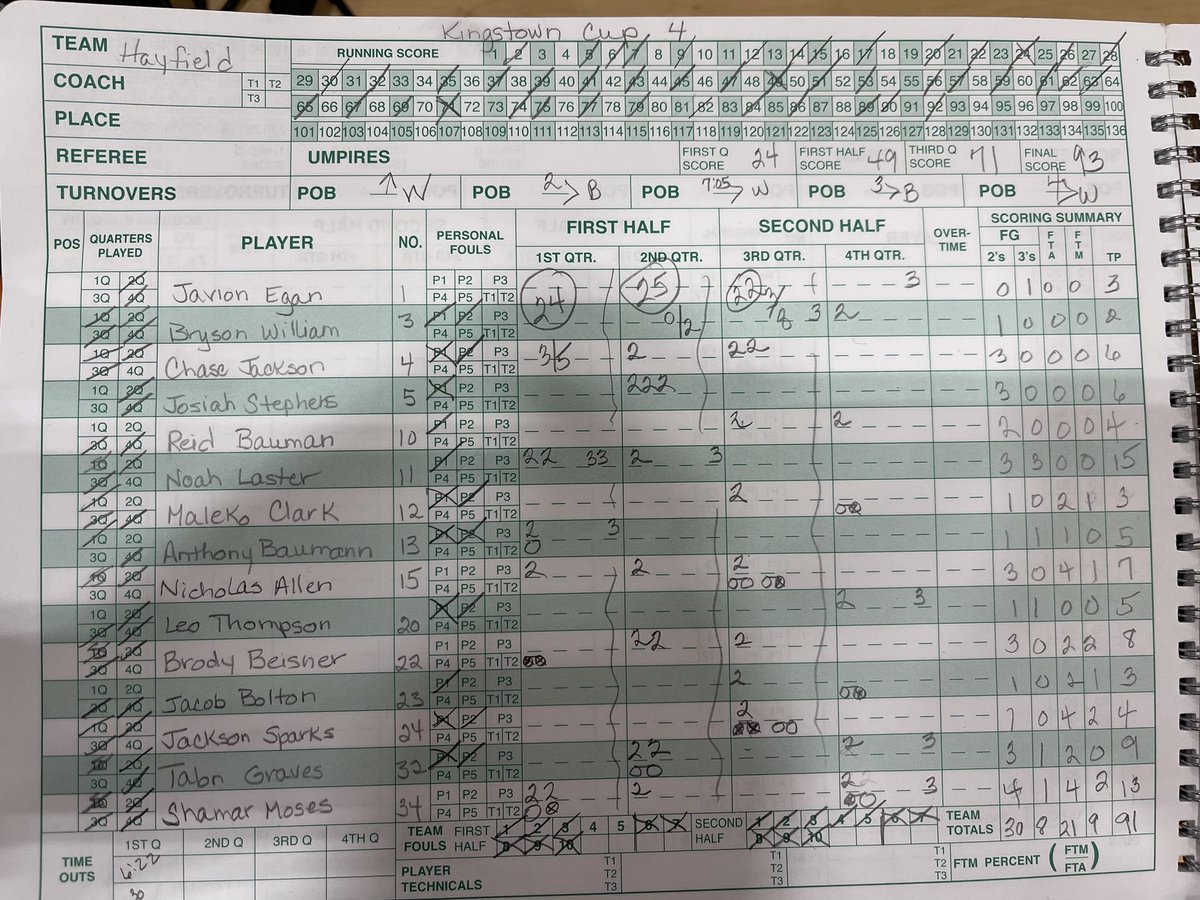 Kingstown Cup 4
TEAM Hayfield RUNNING SCORE 1 2 3 4 5 6 7 8 9 10 11 12 13 14 15 16 17 18 19 20 21 22 23 24 25 26 27 28
COACH T1 T2 T3 29 30 31 32 33 34 35 36 37 38 39 40 41 42 43 44 45 46 47 48 49 50 51 52 53 54 55 56 57 58 59 60 61 62 63 64
65 66 67 68 69 70 71 72 73 74 75 76 77 78 79 80 81 82 83 84 85 86 87 88 89 90 91 92 93 94 95 96 97 98 99 100
PLACE 101 102 103 104 105 106 107 108 109 110 111 112 113 114 115 116 117 118 119 120 121 122 123 124 125 126 127 128 129 130 131 132 133 134 135 136
REFEREE UMPIRES FIRST Q SCORE 24 FIRST HALF SCORE 49 THIRD Q SCORE 71 FINAL SCORE 93
TURNOVERS POB → W POB 2 → B POB 7:05 → W POB 3 → B POB → W
POS QUARTERS PLAYED PLAYER NO. PERSONAL FOULS FIRST HALF SECOND HALF OVER-TIME SCORING SUMMARY
1ST QTR. 2ND QTR. 3RD QTR. 4TH QTR. FG 2's 3's FTA FTM TP
1Q 2Q 3Q 4Q Javion Egan 1 P1 P2 P3 P4 P5 T1 T2 24 25 22 3 0 1 0 0 3
1Q 2Q 3Q 4Q Bryson William 3 P1 P2 P3 P4 P5 T1 T2 2 1 0 0 0 2
1Q 2Q 3Q 4Q Chase Jackson 4 P1 P2 P3 P4 P5 T1 T2 2 22 3 0 0 0 6
1Q 2Q 3Q 4Q Josiah Stephers 5 P1 P2 P3 P4 P5 T1 T2 222 3 0 0 0 6
1Q 2Q 3Q 4Q Reid Bauman 10 P1 P2 P3 P4 P5 T1 T2 2 2 2 0 0 0 4
1Q 2Q 3Q 4Q Noah Laster 11 P1 P2 P3 P4 P5 T1 T2 22 33 2 3 3 3 0 0 15
1Q 2Q 3Q 4Q Maleko Clark 12 P1 P2 P3 P4 P5 T1 T2 2 1 0 2 1 3
1Q 2Q 3Q 4Q Anthony Baumann 13 P1 P2 P3 P4 P5 T1 T2 2 3 0 1 1 1 0 5
1Q 2Q 3Q 4Q Nicholas Allen 15 P1 P2 P3 P4 P5 T1 T2 2 2 2 3 0 4 1 7
1Q 2Q 3Q 4Q Leo Thompson 20 P1 P2 P3 P4 P5 T1 T2 2 3 1 1 0 0 5
1Q 2Q 3Q 4Q Brody Beisner 22 P1 P2 P3 P4 P5 T1 T2 22 2 3 0 2 2 8
1Q 2Q 3Q 4Q Jacob Bolton 23 P1 P2 P3 P4 P5 T1 T2 2 1 0 2 1 3
1Q 2Q 3Q 4Q Jackson Sparks 24 P1 P2 P3 P4 P5 T1 T2 2 00 1 0 4 2 4
1Q 2Q 3Q 4Q Tabn Graves 32 P1 P2 P3 P4 P5 T1 T2 22 00 2 3 3 1 2 0 9
1Q 2Q 3Q 4Q Shamar Moses 34 P1 P2 P3 P4 P5 T1 T2 22 2 22 3 4 1 4 2 13
TIME OUTS 1ST Q 2ND Q 3RD Q 4TH Q TEAM FOULS FIRST HALF 1 2 3 4 5 6 7 8 9 10 SECOND HALF 1 2 3 4 5 6 7 8 9 10 TEAM TOTALS 30 8 21 9 91
6:22
30
PLAYER TECHNICALS T1 T2 T3 T1 T2 T3 T1 T2 T3 FTM PERCENT ( FTM FTA )